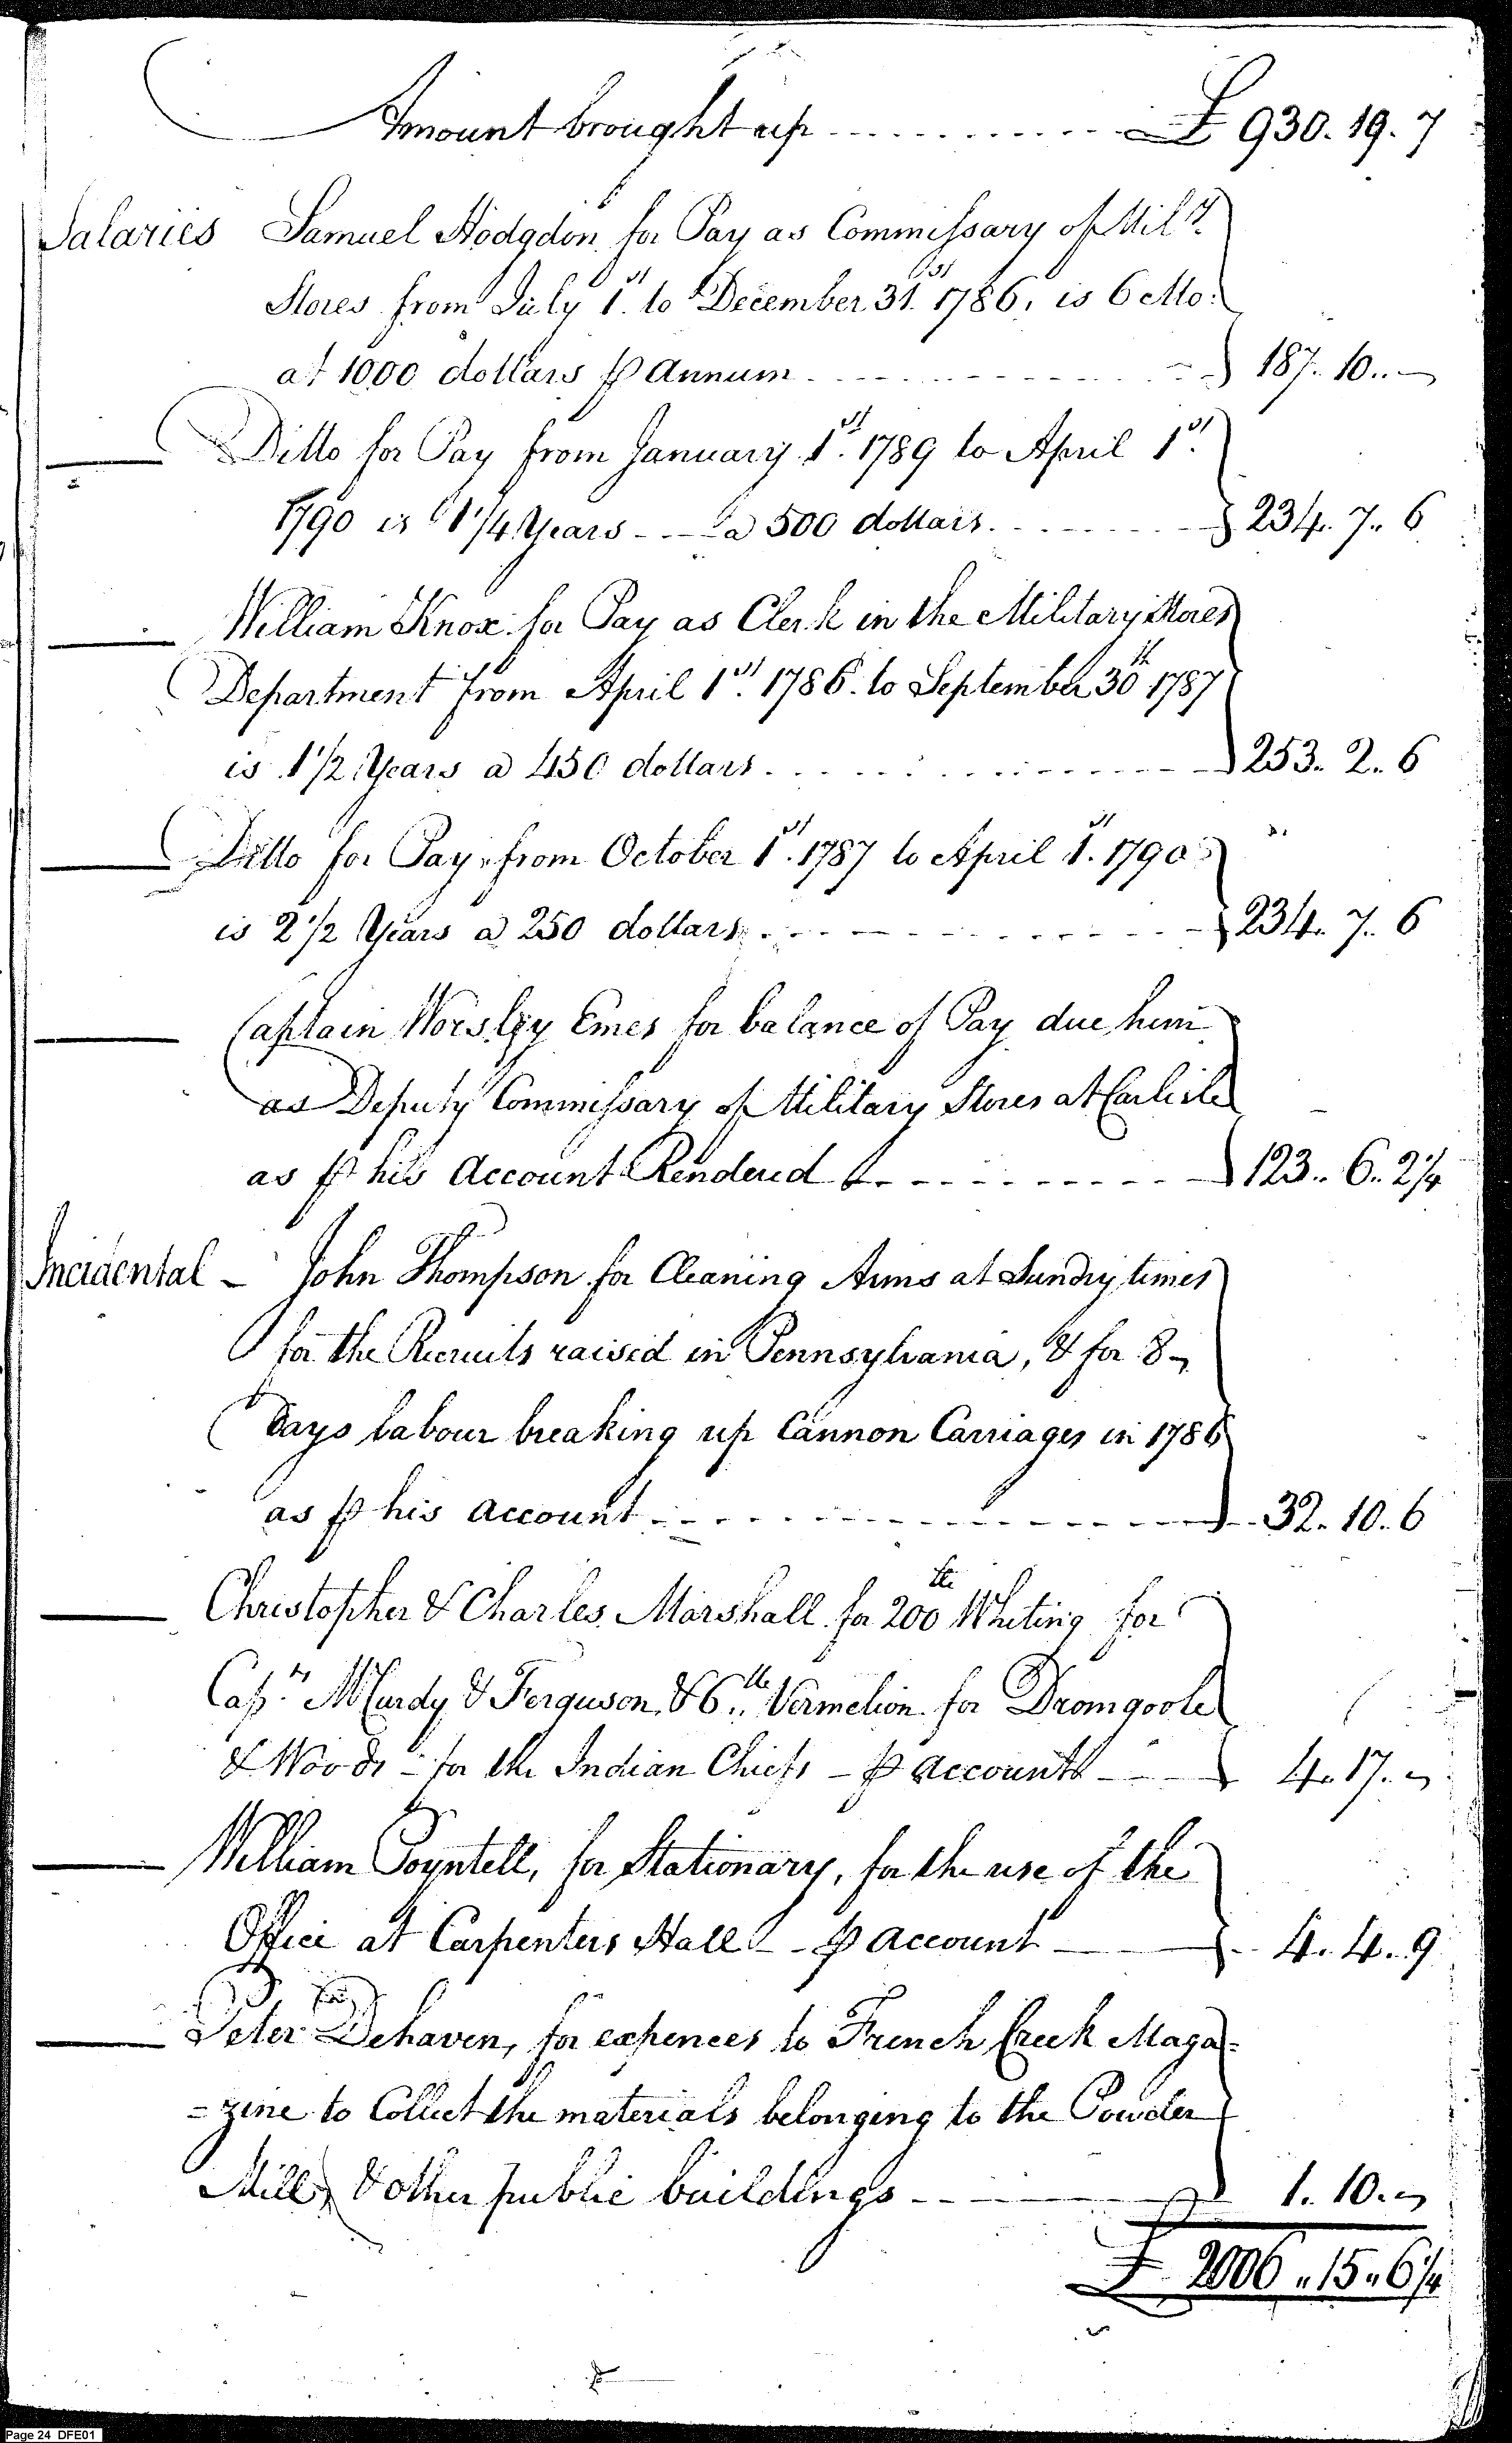 Amount brought up ............ £ 930. 19. 7
Salaries Samuel Hodgdon for Pay as Commissary of Mil.ʸ
Stores from July 1.ˢᵗ to December 31.ˢᵗ 1786, is 6 Mo:
at 1000 dollars ⅌ Annum ............ 187.. 10.. —
Ditto for Pay from January 1.ˢᵗ 1789 to April 1.ˢᵗ
1790 is 1 1/4 Years --- @ 500 dollars ............ 234.. 7.. 6
William Knox for Pay as Clerk in the Military Stores
Department from April 1.ˢᵗ 1786. to September 30.ᵗʰ 1787
is 1 1/2 Years @ 450 dollars ............ 253.. 2.. 6
Ditto for Pay, from October 1.ˢᵗ 1787 to April 1.ˢᵗ 1790
is 2 1/2 Years @ 250 dollars ............ 234.. 7.. 6
Captain Worsley Emes for balance of Pay due him
as Deputy Commissary of Military Stores at Carlisle
as ⅌ his Account Rendered ............ 123.. 6.. 2 1/4
Incidental – John Thompson for Cleaning Arms at Sundry times
for the Recruits raised in Pennsylvania, & for 8
days labour breaking up Cannon Carriages in 1786
as ⅌ his account ............ 32.. 10.. 6
Christopher & Charles Marshall for 200 ˡᵇ Whiting for
Cap.ᵗˢ McCurdy & Ferguson, & 6 ˡᵇ Vermelion for Dromgoole
& Woods – for the Indian Chiefs – ⅌ accounts --- 4.. 17.. —
William Poyntell, for Stationary, for the use of the
Office at Carpenters Hall – ⅌ account --- 4.. 4.. 9
Peter Dehaven, for expences to French Creek Maga=
=zine to Collect the materials belonging to the Powder
Mill, & other public buildings --- 1.. 10.. —
£ 2006 .. 15 .. 6 1/4
Page 24 DFE01